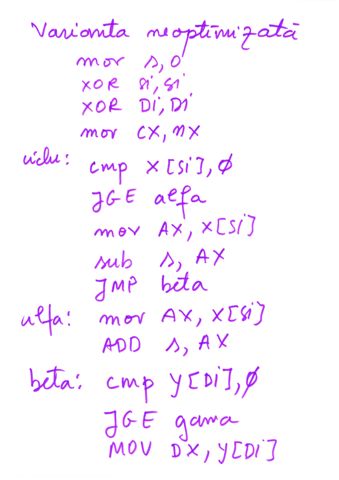 Varianta neoptimizată
mov s, 0
XOR si, si
XOR Di, Di
mov CX, nx
ciclu: cmp X[si], ∅
JGE alfa
mov AX, X[si]
sub s, AX
JMP beta
alfa: mov AX, X[si]
ADD s, AX
beta: cmp Y[Di], ∅
JGE gama
MOV DX, Y[Di]